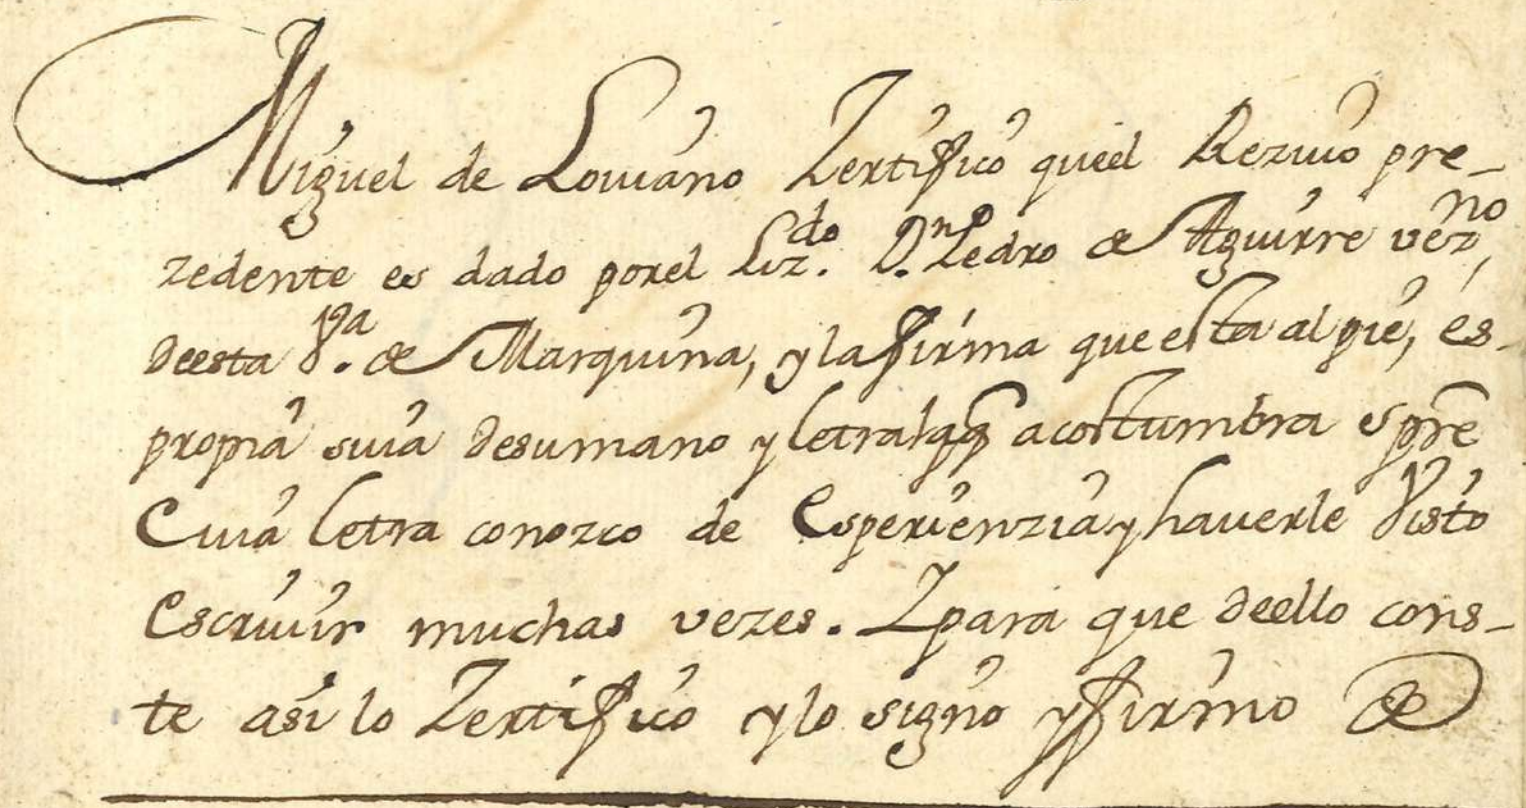 Miguel de Louiano Zertifico queel Rezivo pre-
zedente es dado porel Liz.do D.n Pedro de Aguirre vezno,
deesta V.a de Marquina, y la firma que esta al pie, es
propia suia desumano y letra acostumbra spre
Cuia letra conozco de Esperienzia y hauerle Visto
Escriuir muchas vezes. Y para que deello cons-
te asi lo Zertifico y lo signo y firmo